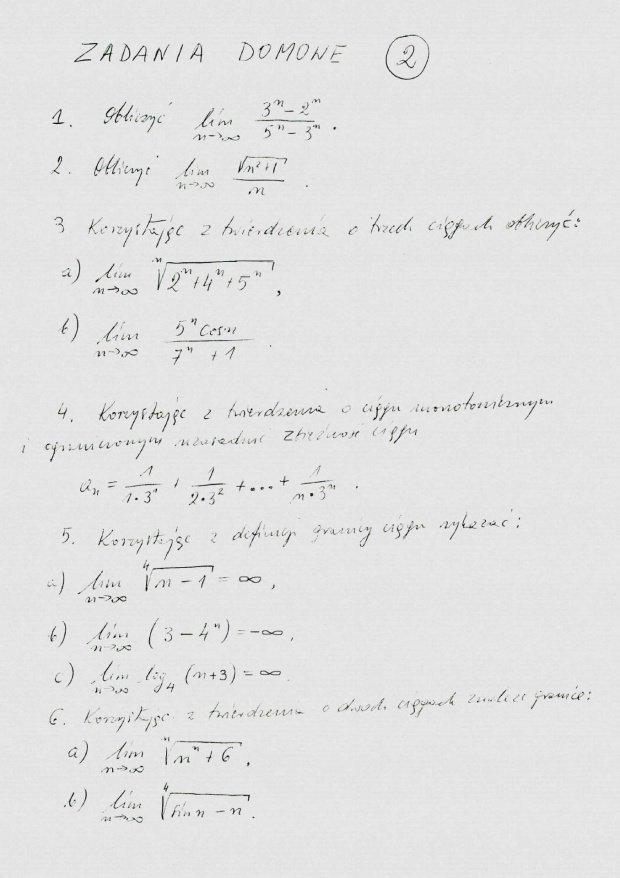 ZADANIA DOMOWE 2
1. Obliczyć lim n→∞ (3^n − 2^n)/(5^n − 3^n).
2. Obliczyć lim n→∞ √(n²+1)/n.
3 Korzystając z twierdzenia o trzech ciągach obliczyć:
a) lim n→∞ ⁿ√(2^n + 4^n + 5^n),
b) lim n→∞ (5^n cosn)/(7^n + 1).
4. Korzystając z twierdzenia o ciągu monotonicznym
i ograniczonym uzasadnić zbieżność ciągu
a_n = 1/(1·3¹) + 1/(2·3²) + ... + 1/(n·3^n).
5. Korzystając z definicji granicy ciągu wykazać:
a) lim n→∞ ⁴√(n − 1) = ∞,
b) lim n→∞ (3 − 4^n) = −∞,
c) lim n→∞ log₄ (n+3) = ∞.
6. Korzystając z twierdzenia o dwóch ciągach znaleźć granice:
a) lim n→∞ ⁿ√(n^n + 6),
b) lim n→∞ ⁴√(sin n − n).